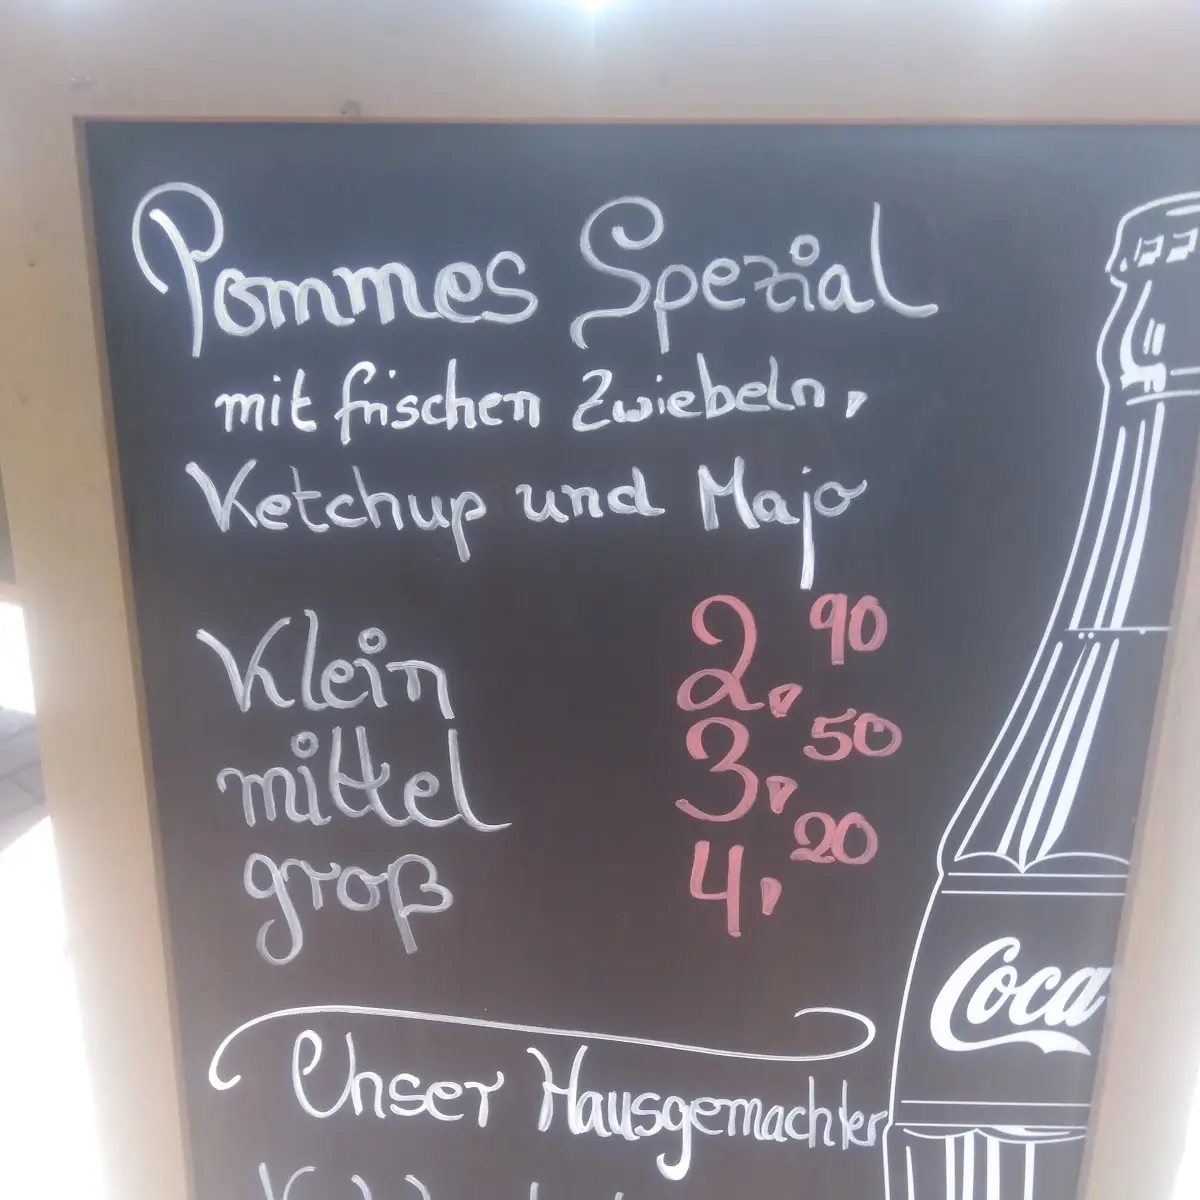 Pommes Spezial
mit frischen Zwiebeln,
Ketchup und Majo
Klein 2,90
mittel 3,50
groß 4,20
Coca
Unser Hausgemachter